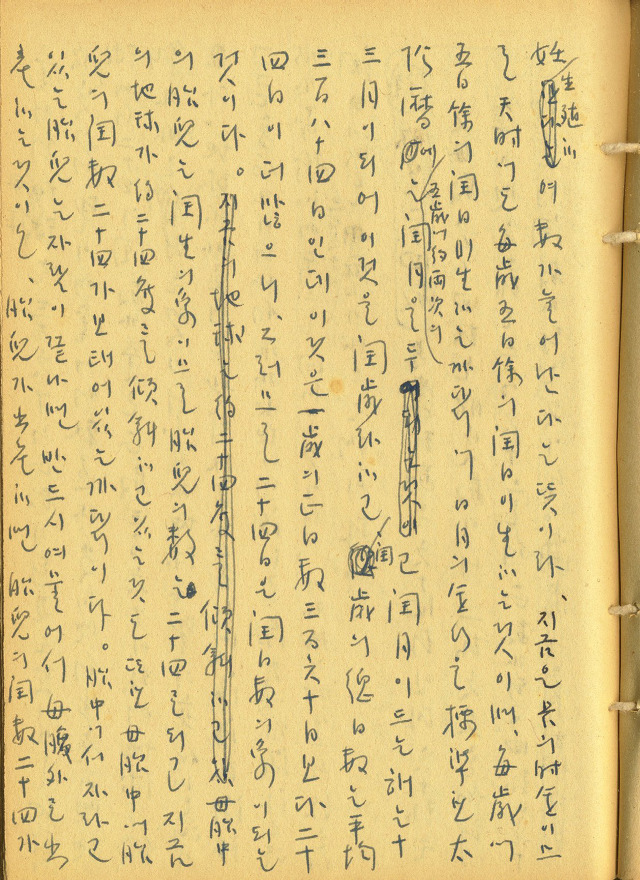 妊生殖하여 數가 늘어난다는 뜻이라、지금은 長의 時運이므
로 天時에도 每歲 五日餘의 閏日이 生하는 것이며、每歲에
五日餘의 閏日이 生하는 까닭에 日月의 運行을 標準한 太
陰曆에는 五歲에 約 兩次의 閏月을 두고 閏月이 드는 해는 十
三月이 되어 이것을 閏歲라 하고 閏歲의 總日數는 平均
三百八十四日인데 이것은 一歲의 正日數 三百六十日보다 二十
四日이 더 많으니、그러므로 二十四日은 閏日數의 象이 되는
것이다。 母胎中
의 胎兒는 閏生의 象이므로 胎兒의 數는 二十四로 되고 지금
의 地球가 約 二十四度를 傾斜하고 있는 것도 또한 母胎中에 胎
兒의 閏數 二十四가 보태어 있는 까닭이다。胎中에서 자라고
있는 胎兒는 자람이 끝나면 반드시 여물어서 母腹外로 出
產하는 것이오、胎兒가 出產하면 胎兒의 閏數 二十四가